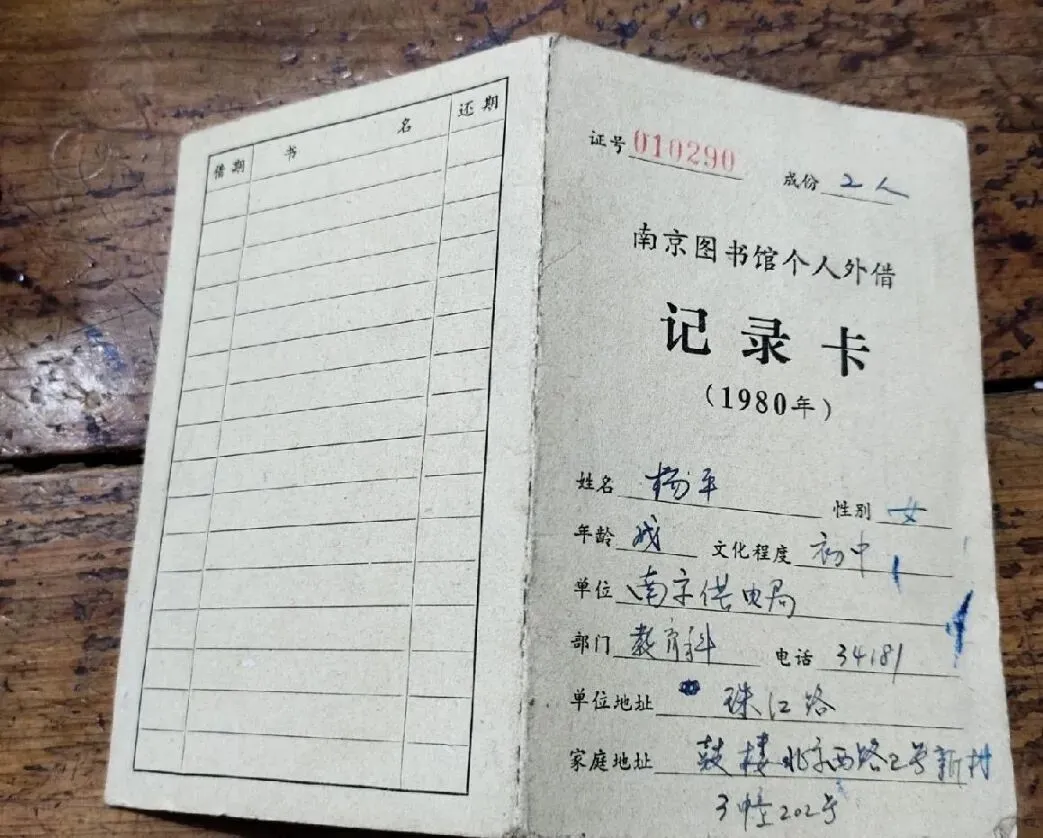 借期 书名 还期
证号 010290
成份 工人
南京图书馆个人外借
记录卡
(1980年)
姓名 杨平 性别 女
年龄 成 文化程度 初中
单位 南京供电局
部门 教育科 电话 34181
单位地址 珠江路
家庭地址 鼓楼北京西路2号新村
3幢202号